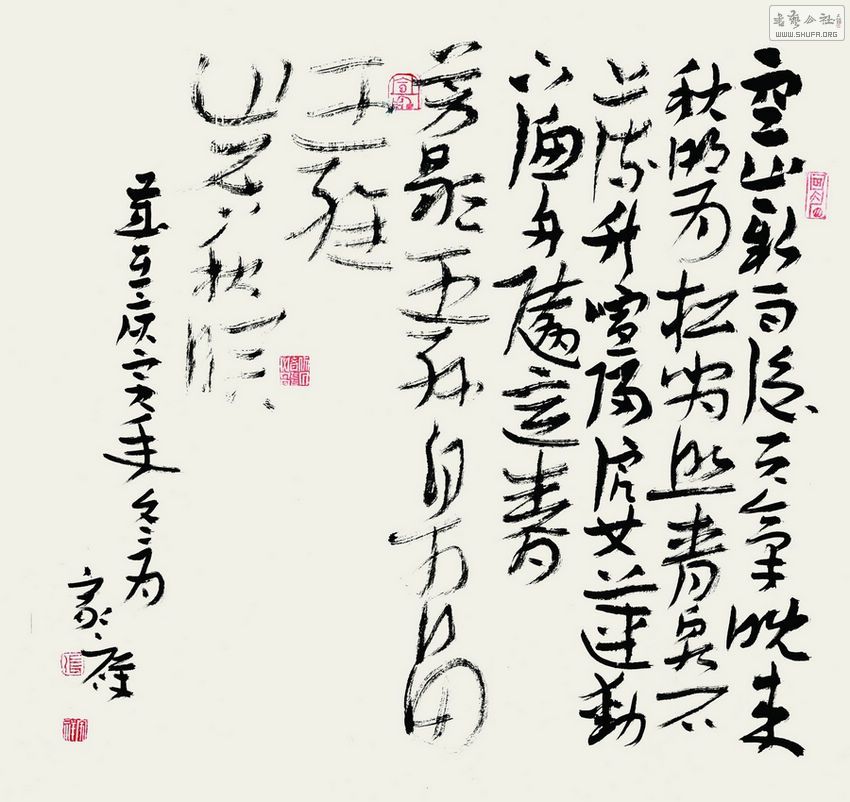 書藝公社
WWW.SHUFA.ORG
空山新雨後天氣晚来
秋明月松間照清泉石
上流竹喧歸浣女蓮動
下漁舟隨意春
芳歇王孫自可留
王維
山居秋暝
庚寅年冬月
家